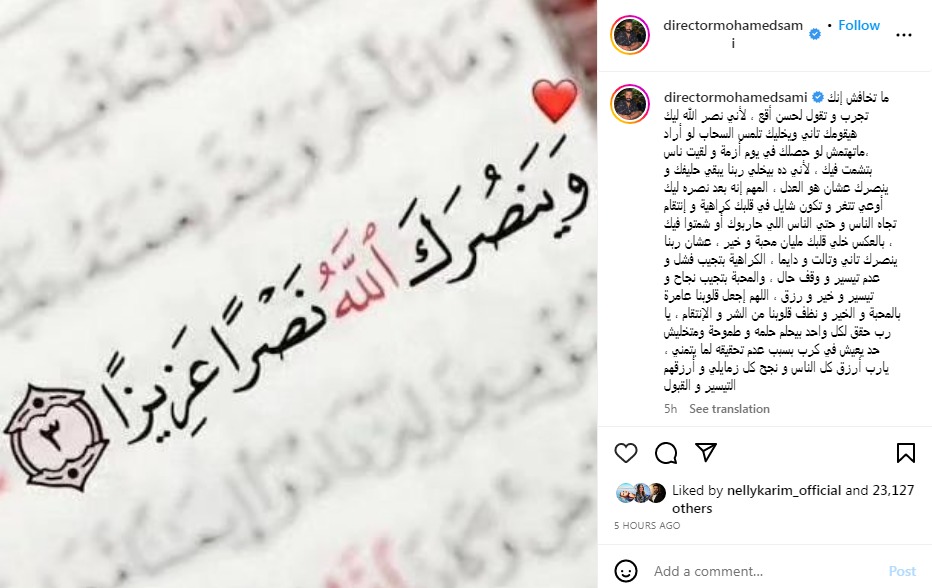 وَيَنصُرَكَ ٱللَّهُ نَصْرًا عَزِيزًا ٣
directormohamedsam
i
• Follow
directormohamedsami ما تخافش إنك
تجرب و تقول لحسن أقع ، لأني نصر الله ليك
هيقومك تاني ويخليك تلمس السحاب لو أراد
،ماتهتمش لو حصلك في يوم أزمة و لقيت ناس
بتشمت فيك ، لأني ده بيخلي ربنا يبقي حليفك و
ينصرك عشان هو العدل ، المهم إنه بعد نصره ليك
أوعي تتغر و تكون شايل في قلبك كراهية و إنتقام
تجاه الناس و حتي الناس اللي حاربوك أو شمتوا فيك
، بالعكس خلي قلبك مليان محبة و خير ، عشان ربنا
ينصرك تاني وتالت و دايما ، الكراهية بتجيب فشل و
عدم تيسير و وقف حال ، والمحبة بتجيب نجاح و
تيسير و خير و رزق ، اللهم إجعل قلوبنا عامرة
بالمحبة و الخير و نظف قلوبنا من الشر و الإنتقام ، يا
رب حقق لكل واحد بيحلم حلمه و طموحة ومتخليش
حد يعيش في كرب بسبب عدم تحقيقه لما يتمني ،
يارب أرزق كل الناس و نجح كل زمايلي و أرزقهم
التيسير و القبول
5h See translation
Liked by nellykarim_official and 23,127
others
5 HOURS AGO
Add a comment... Post